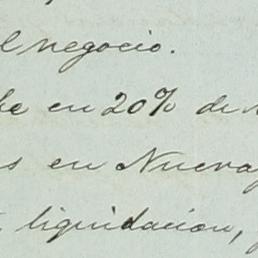 el negocio.
en 20% de
en Nueva
liquidacion,